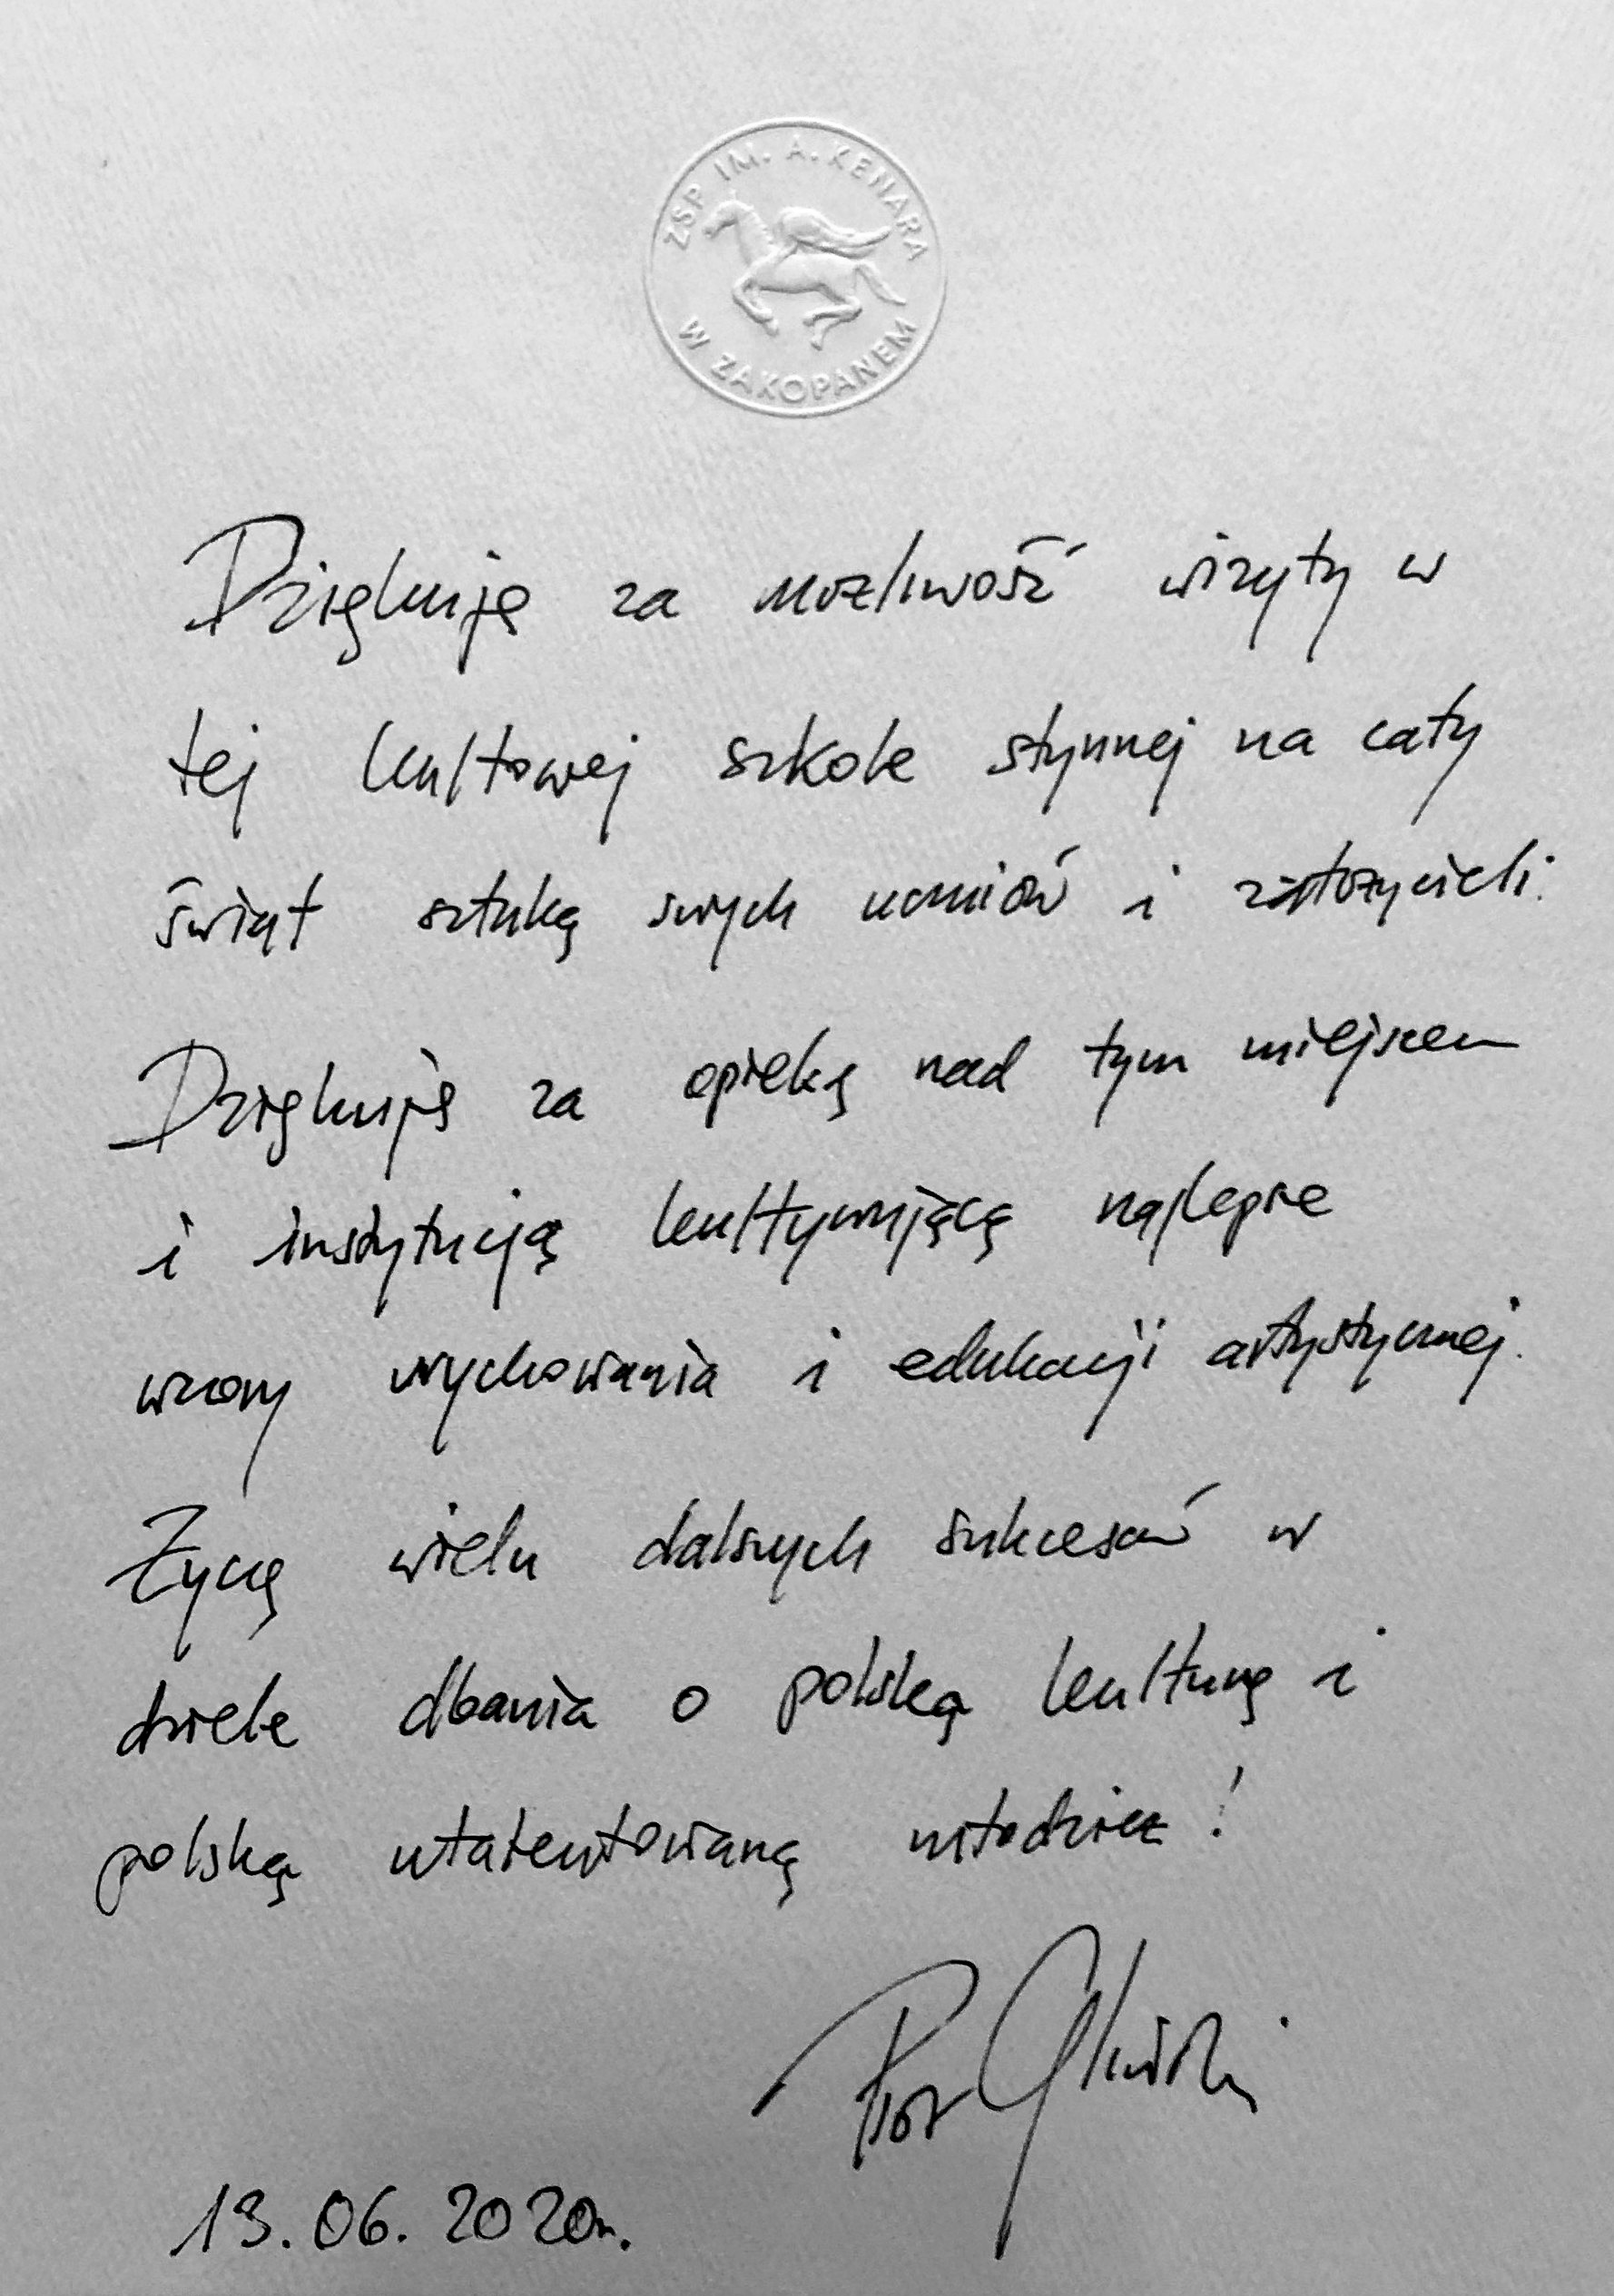 ZSP IM. A. KENARA
W ZAKOPANEM
Dziękuję za możliwość wizyty w
tej kultowej szkole słynnej na cały
świat sztuką swych uczniów i założycieli.
Dziękuję za opiekę nad tym miejscem
i instytucją kultywującą najlepsze
wzory wychowania i edukacji artystycznej.
Życzę wielu dalszych sukcesów w
dziele dbania o polską kulturę i
polską utalentowaną młodzież!
Piotr Gliński
13.06.2020r.